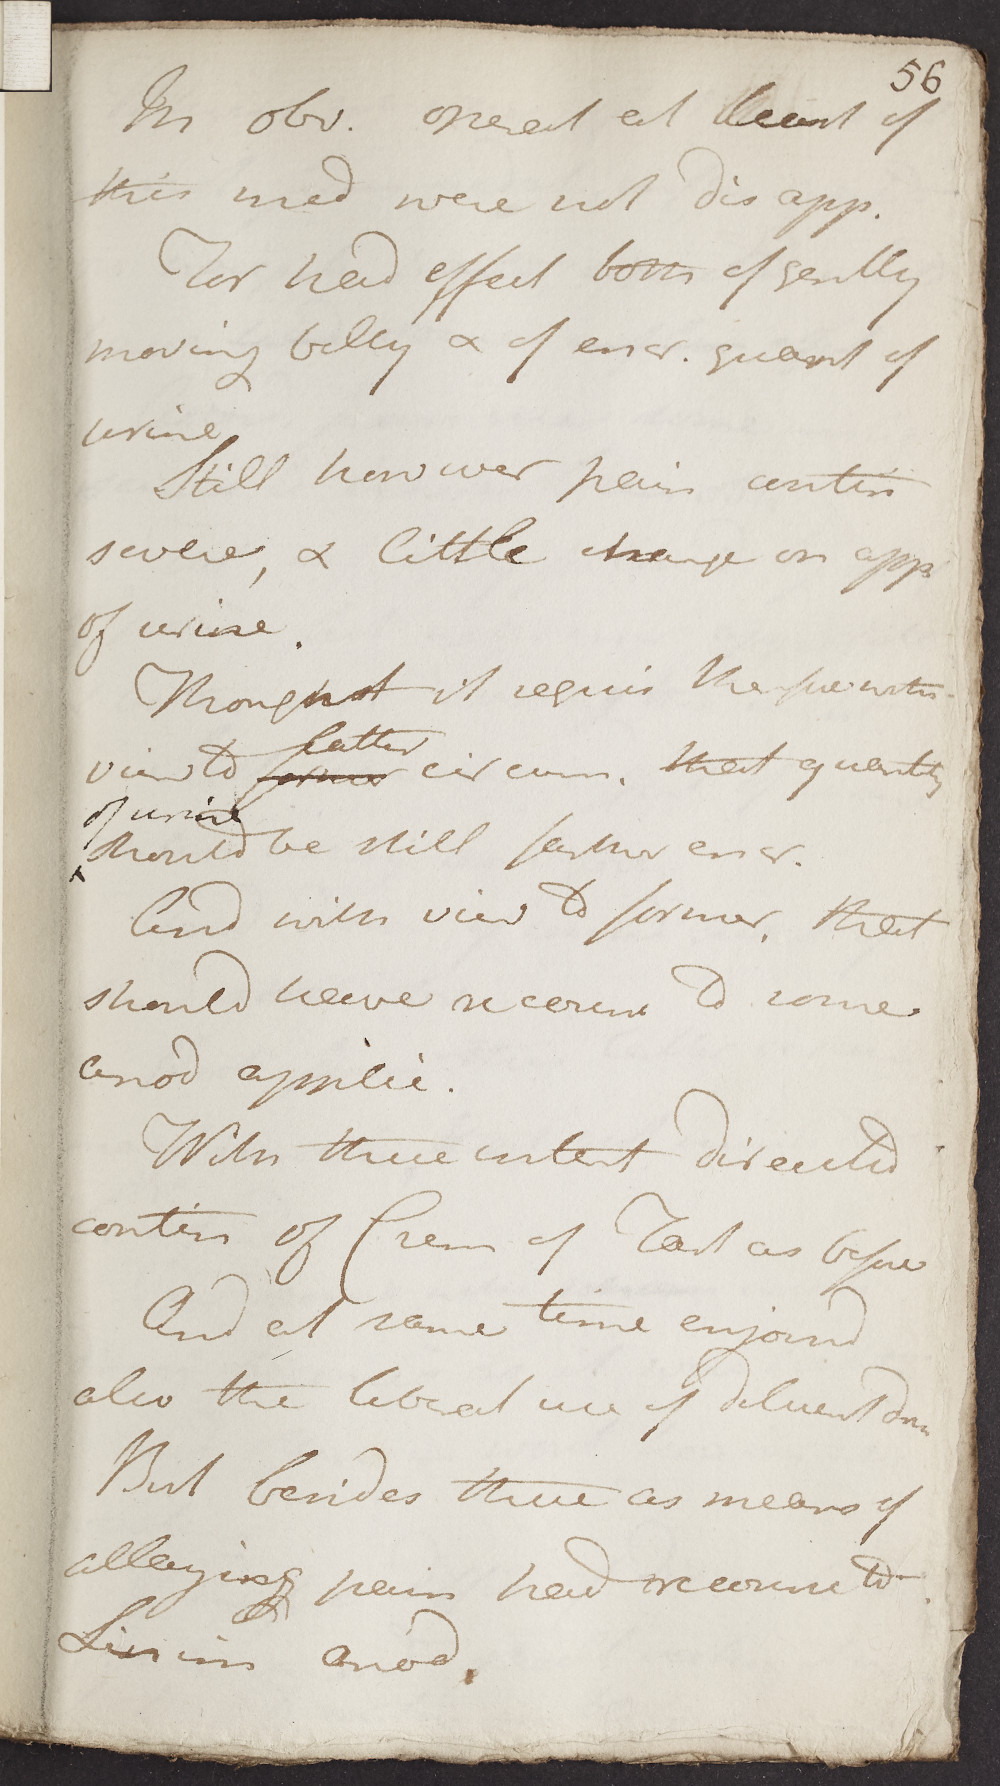 56
In obv. operat at least of
this med were not disapp.
For had effect both of gently
moving belly & of encr. quant of
urine
Still however pain contin
severe, & little change on app
of urine.
Thought it requis therefore with
view to latter circum. that quantity
of urine
should be still farther encr.
And with view to former, that
should have recourse to some
anod applic.
With these intent directed
contin of Crem of Tart as before
And at same time enjoind
also the liberal use of diluent drin
But besides these as means of
allaying pain had recourse to
Linim anod.